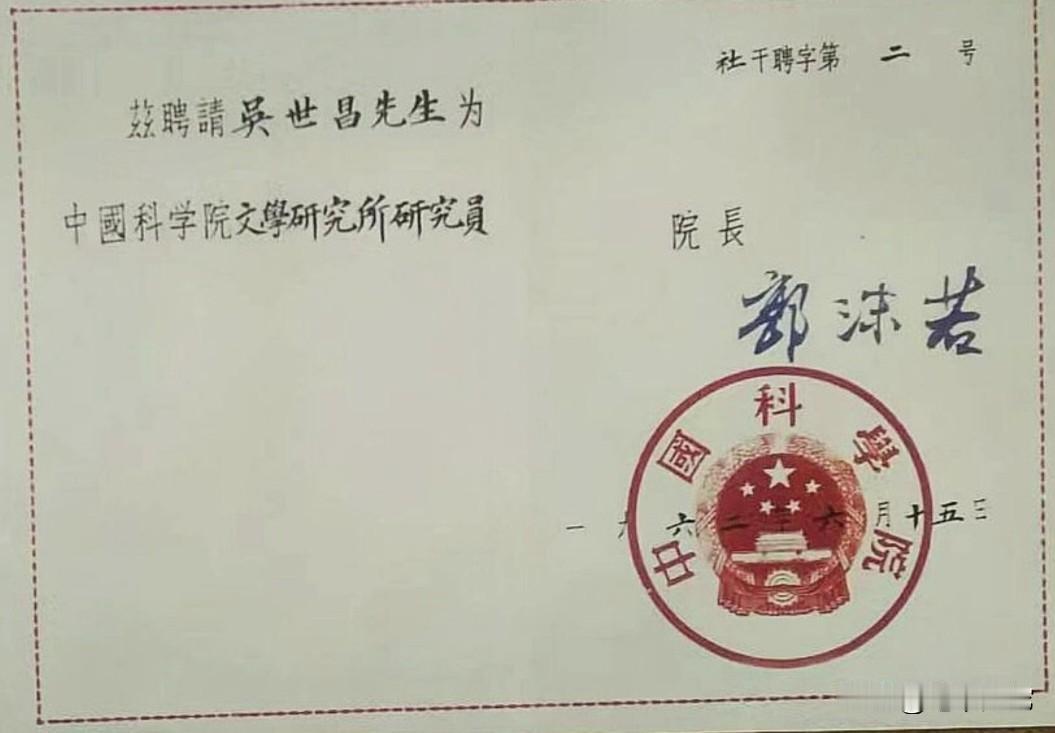 茲聘請吳世昌先生为
中國科学院文學研究所研究員
社干聘字第 二 号
院長
郭沫若
中國科學院
一九六二年六月十五日